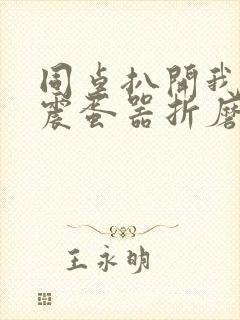 同桌扒開我
震蛋器折磨
王永明